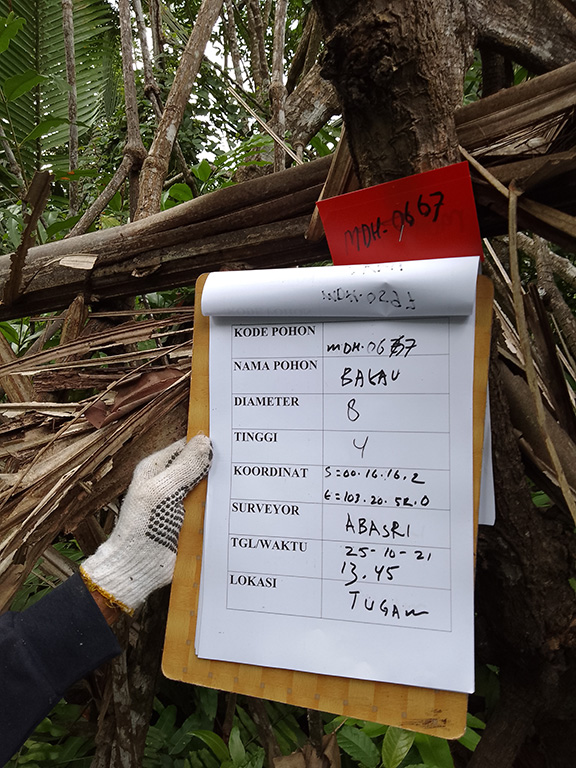 MDH-0667
KODE POHON MDH-0667
NAMA POHON BAKAU
DIAMETER 8
TINGGI 4
KOORDINAT S=00.16.16.2
E=103.20.52.0
SURVEYOR ABASRI
TGL/WAKTU 25-10-21
13.45
LOKASI TUGAN